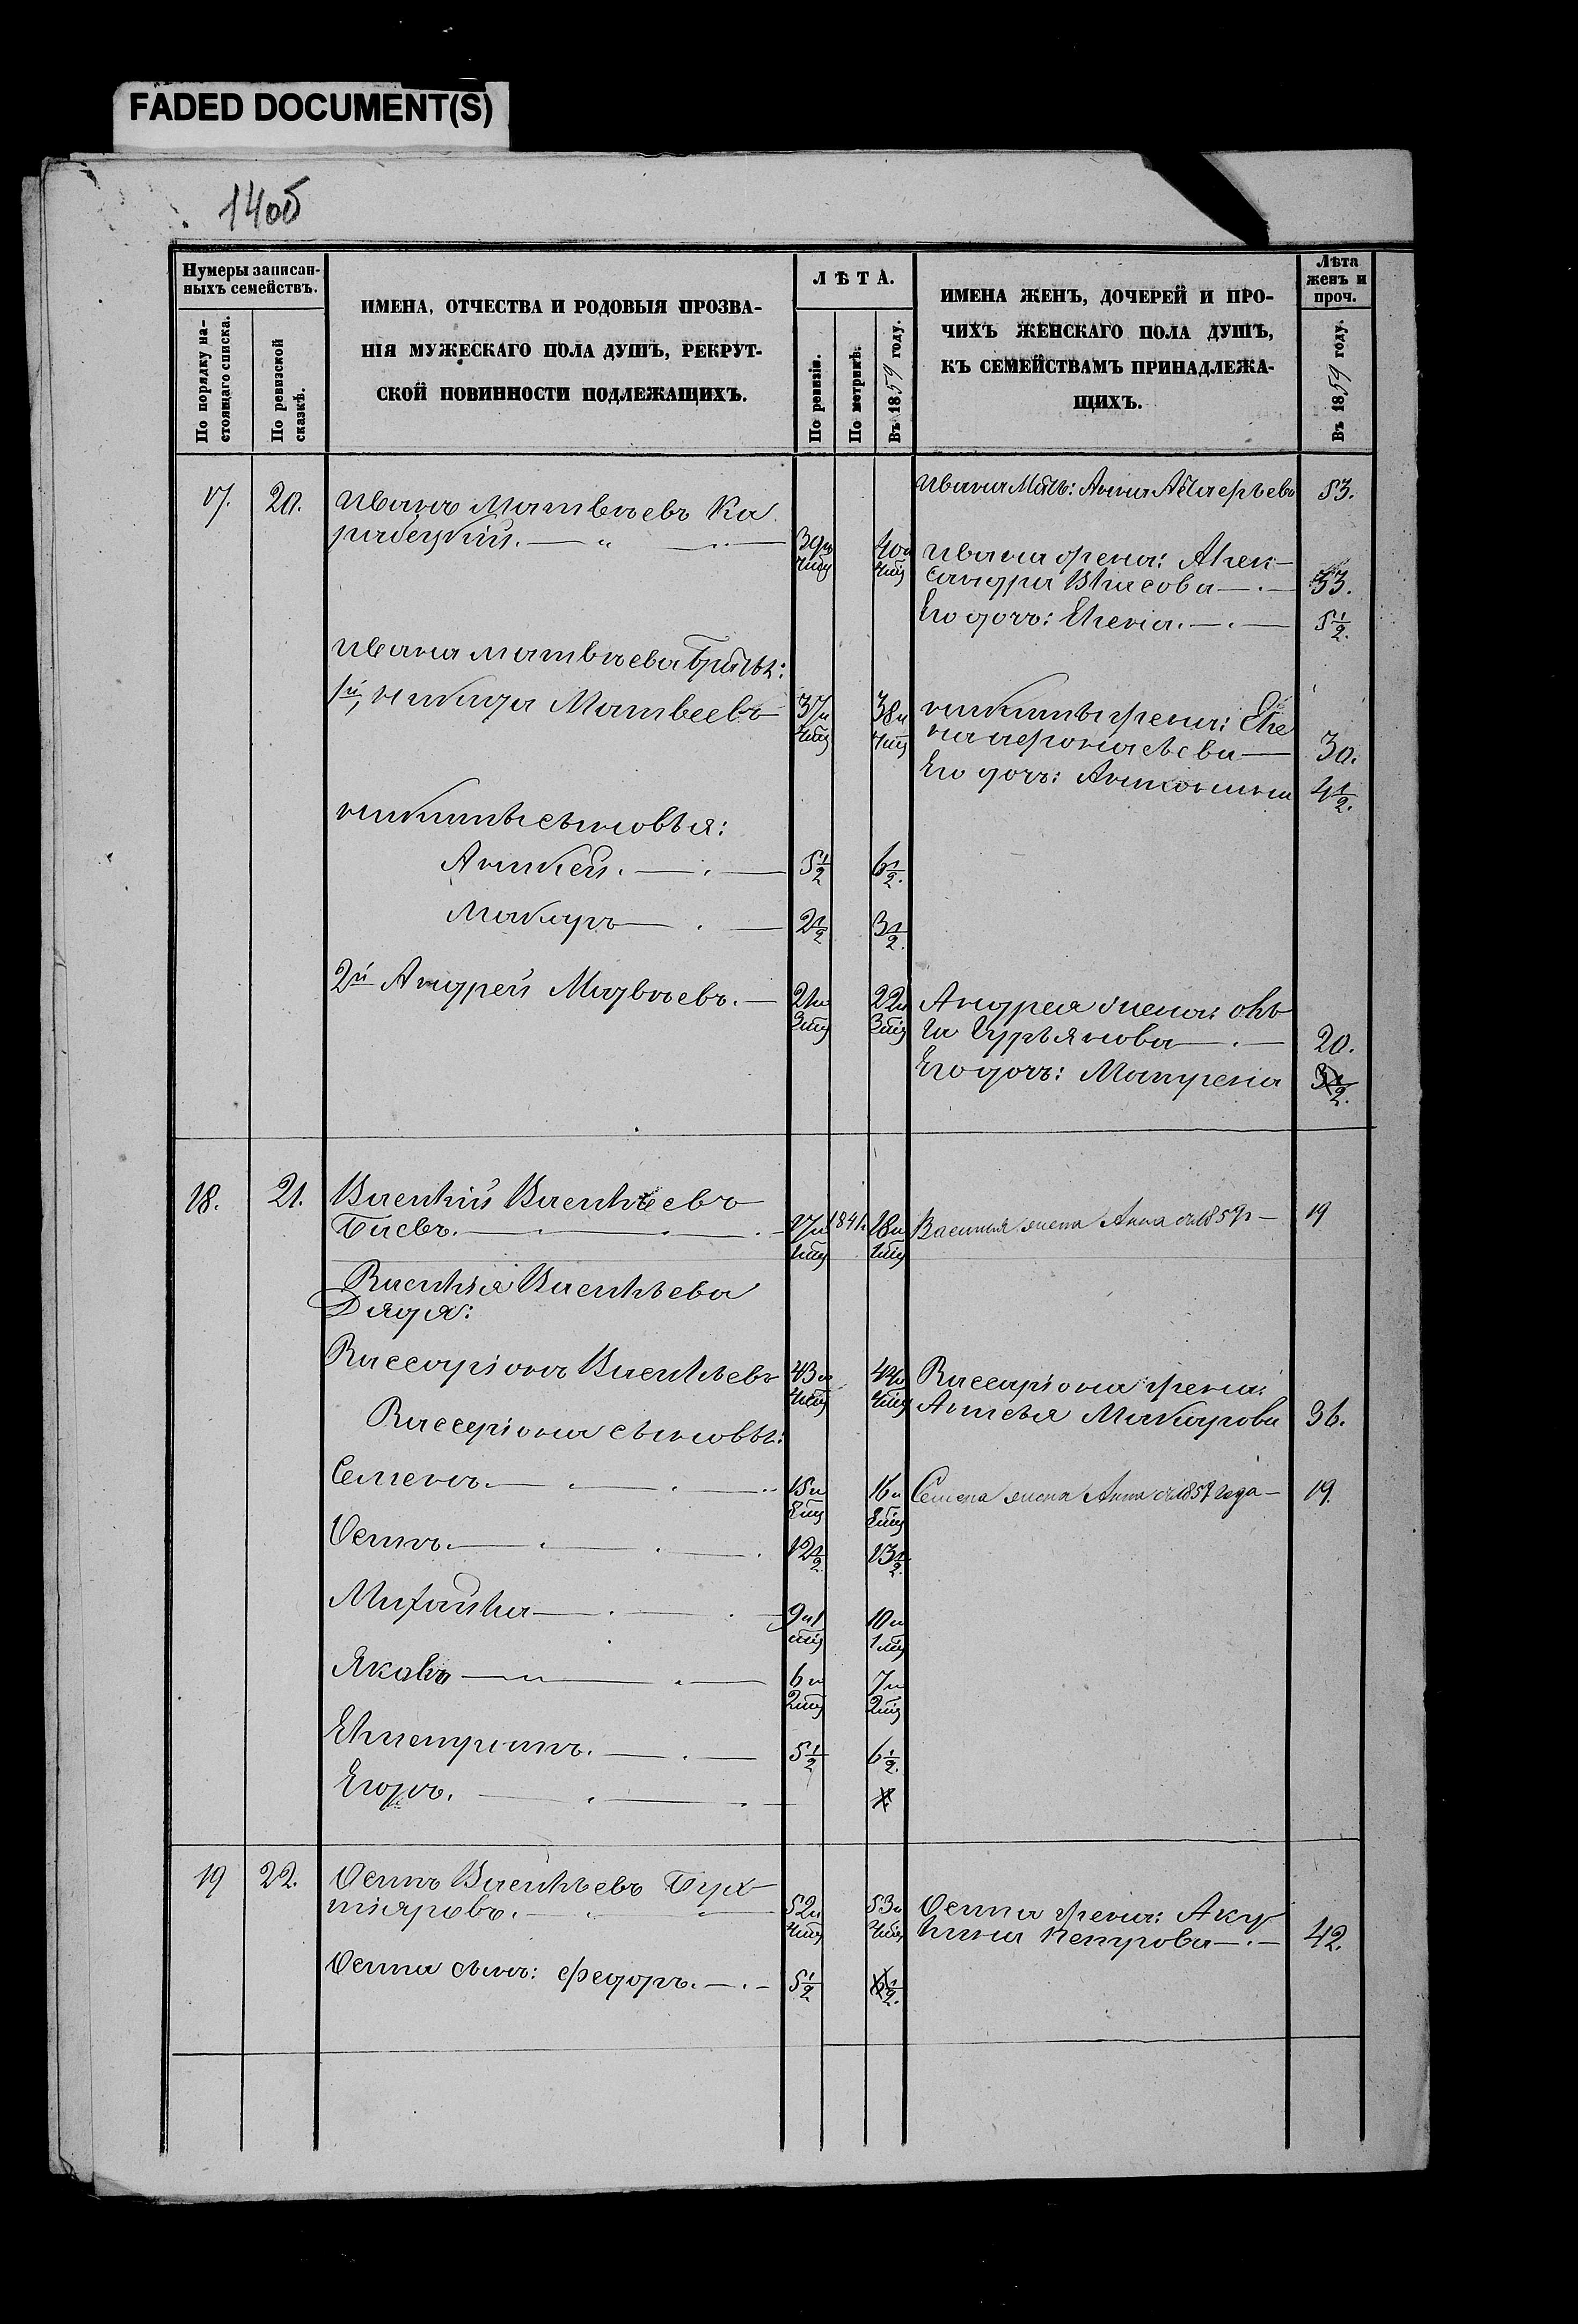 FADED DOCUMENT(S)
140об
Нумеры записан-
ныхъ семействъ.
По порядку на-
стоящаго списка.
По ревизской
сказкѣ.
ИМЕНА, ОТЧЕСТВА И РОДОВЫЯ ПРОЗВА-
НІЯ МУЖЕСКАГО ПОЛА ДУШЪ, РЕКРУТ-
СКОЙ ПОВИННОСТИ ПОДЛЕЖАЩИХЪ.
ЛѢТА.
По ревизіи.
По метрикѣ.
Въ 1859 году.
ИМЕНА ЖЕНЪ, ДОЧЕРЕЙ И ПРО-
ЧИХЪ ЖЕНСКАГО ПОЛА ДУШЪ,
КЪ СЕМЕЙСТВАМЪ ПРИНАДЛЕЖА-
ЩИХЪ.
Лѣта
женъ и
проч.
Въ 1859 году.
17. 20. Иванъ Матвѣевъ Ка
Ивана Мать: Анна 53.
39 40
Ивана жена: Алек-
сандра Власова 33.
Его дочь: Елена. 5 1/2.
Ивана Матвѣева братья:
1й, Никита Матвеевъ 37 38
Никиты жена: Еле
на 30.
Его дочь: 4 1/2.
Никиты сыновья:
Аникей. 5 1/2 6 1/2.
Макаръ 2 1/2 3 1/2.
2й Андрей Матвѣевъ. 21 22
Андрея жена: Оль
га Гурьянова 20.
Его дочь: Матрена 3 1/2.
18. 21. Василій Васильевъ
17 1841 18 Василия жена Анна съ 1859 г 19
Василья Васильева
Дядя:
Виссаріонъ Васильевъ 43 44
Виссаріона жена:
Анисья Макарова 36.
Виссаріона сыновья:
Семенъ. 15 16 Семена жена Анна съ 1859 года 19.
Осипъ. 12 1/2 13 1/2.
Михайла 9 10
Яковъ 6 7
Елпетримъ. 5 1/2 6 1/2.
Егоръ.
19 22. Осипъ Васильевъ Бух
тіяровъ. 52 53
Осипа жена: Аку
лина Петрова 42.
Осипа сынъ: Федоръ. 5 1/2 6 1/2.